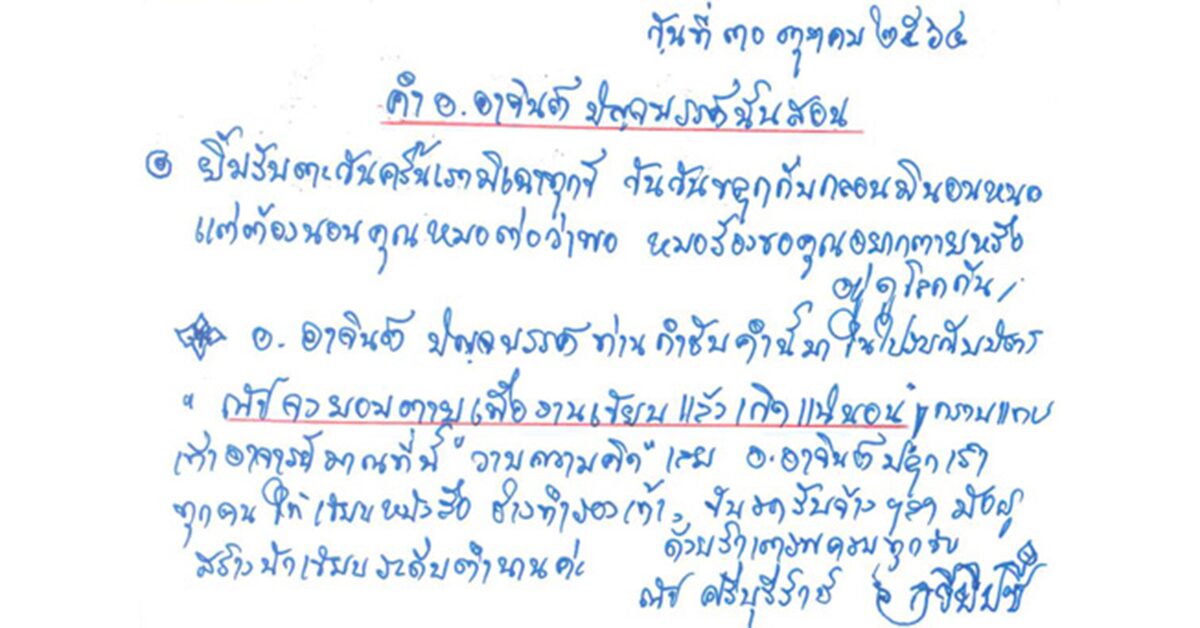 วันที่ ๓๐ ตุลาคม ๒๕๖๔
คำ อ. อาจินต์ ปัญจพรรค์นั้นสอน
ยิ้มรับตะวัน วันวัน กับกลอนมินอนหนอ
แต่ต้องนอนคุณหมอต่อว่าพอ หมอร้องขอคุณอยากตายหรือ
อยู่ดูโลกกัน
อ. อาจินต์ ปัญจพรรค์ ท่านกำชับคำนี้มา ในไปรษณียบัตร
" ณัชควรยอมตายเพื่องานเขียน แล้วเกิดแน่นอน" กราบแทบ
เท้าอาจารย์มาณที่นี้ "วาบความคิด" เลย อ. อาจินต์ปลุกเรา
ทุกคน ให้เขียนหนังสือ ช่างทำรองเท้า, ขับรถรับจ้าง ฯลฯ
สร้างนักเขียนระดับตำนานค่ะ
ด้วยรักเคารพครบทุกวัย
ณัช ศรีบุรีราช